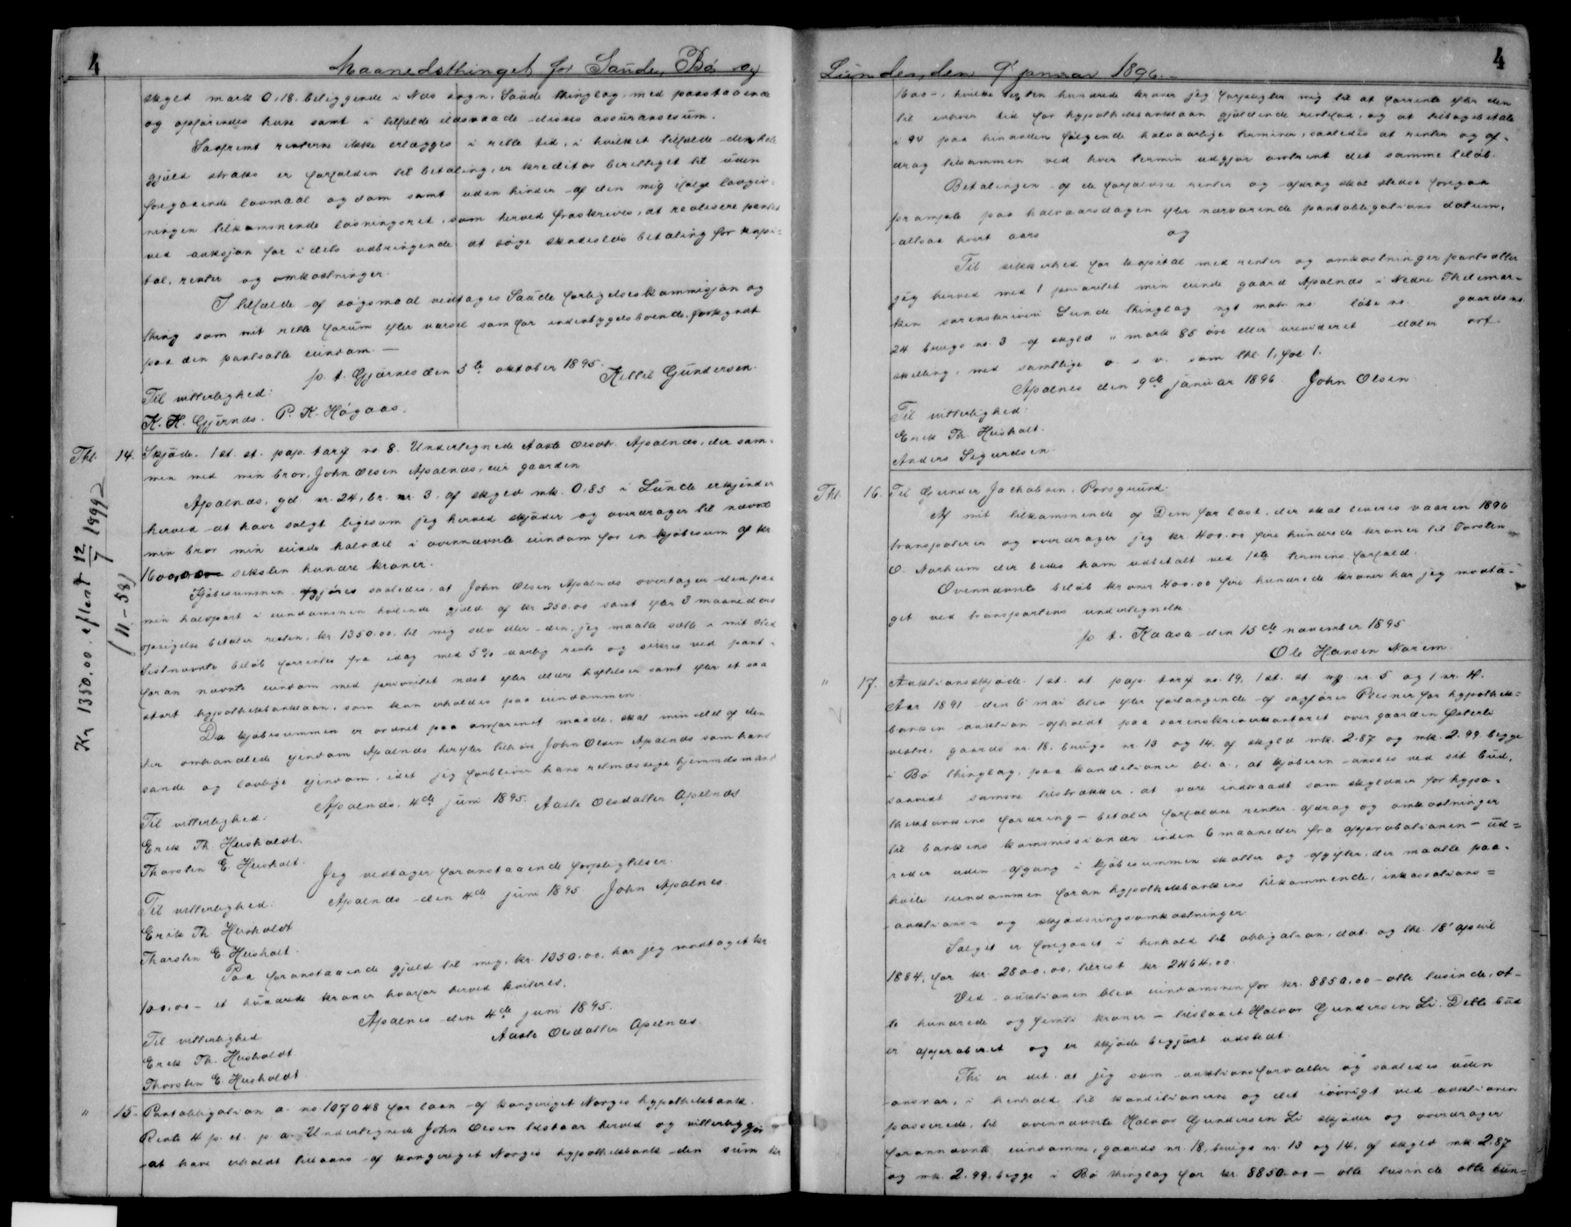 4
Maanedsthinget for Saude, Bø og
skyld mark 0,18, beliggende i Nes sogn, Saude thinglag, med paastaaende
og opførendes huse samt i tilfælde ildsvaade disses assuransesum.
Saafremt renterne ikke erlægges i rette tid, i hvilket tilfælde den hele
gjæld straks er forfalden til betaling, er kreditor berettiget til uden
foregaaende lovmaal og dom samt uden hinder af den mig ifølge lovgiv-
ningen tilkommende løsningsret, som herved fraskrives, at realisere pantet
ved auksjon for i dets udbringende at søge skadesløs betaling for kapi-
tal, renter og omkostninger.
I tilfælde af søgsmaal vedtages Saude forligelseskommisjon og
thing som mit rette forum efter varsel som for indenbygdsboende, forkyndt
paa den pantsatte eiendom. —
p. t. Gjernes den 5te oktober 1895. Kittil Gundersen.
Til vitterlighed:
K. H. Gjernes. P. K. Høgaas.
Thl. 14. Skjøde. 1 st. st. pap. tarif no 8. Undertegnede Aaste Olsdtr. Apalnes, der sam-
men med min bror, John Olsen Apalnes, eier gaarden
Apalnes, gd nr. 24, br. nr. 3 af skyld mk. 0,85 i Lunde erkjender
herved at have solgt ligesom jeg herved skjøder og overdrager til nævnte
min bror min eiende halvdel i ovennævnte eiendom for en kjøbesum af kr
1600,00 seksten hundre kroner.
Kjøbesummen afgjøres saaledes, at John Olsen Apalnes overtager den paa
min halvpart i eiendommen hvilende gjæld af kr. 250.00 samt efter 3 maaneders
opsigelse betaler resten, kr. 1350.00, til mig selv eller den, jeg maatte sætte i mit sted
Sistnævnte beløb forrentes fra idag med 5% aarlig rente og sikres ved pant
foran nævnte eiendom med prioritet næst efter ældre hæftelser samt efter et saa
stort hypothekbanklaan, som kan erholdes paa eiendommen.
Da kjøbesummen er ordnet paa omforenet maade, skal min del af den
her omhandlede eiendom Apalnes herefter tilhøre John Olsen Apalnes som hans
sande og lovlige eiendom, idet jeg forbliver hans retmæssige hjemmelsmand
Apalnes, 4de juni 1895. Aaste Olsdatter Apelnes
Til vitterlighed:
Erik Th. Heisholdt.
Thorsten E. Heisholt.
Jeg vedtager foranstaaende forpligtelser.
Til vitterlighed. Apalnes den 4de juni 1895 John Apalnes.
Erik Th Heisholdt
Thorsten E Heisholt.
Paa foranstaaende gjæld til mig, kr. 1350.00, har jeg modtaget kr
100.00 – et hundrede kroner hvorfor herved kvitteres.
Apalnes den 4de juni 1895.
Til vitterlighed Aaste Olsdatter Apelnes
Erik Th. Heisholdt
Thorsten E. Heisholdt.
Kr 1350.00. eflest 12/7 1899
(11-58)
" 15. Pantobligation a. no 107048 for laan af kongeriget Norges hypothekbank.
Rente 4 p. ct. p. a. Undertegnede John Olsen tilstaar herved og vitterliggjør
at have erholdt tillaans af kongeriget Norges hypothekbank den sum kr
4
Lunde, den 9' januar 1896.
1600 –, hvilke seksten hundrede kroner jeg forpligter mig til at forrente efter den
til enhver tid for hypothekbanklaan gjældende rentefod, og at tilbagebetale
i 94 paa hinanden følgende halvaarlige terminer, saaledes at renter og af-
drag tilsammen ved hver termin udgjør omtrent det samme beløb.
Betalingen af de forfaldne renter og afdrag skal stedse foregaa
prompte paa halvaarsdagen efter nærværende pantobligations datum,
altsaa hvert aars og
Til sikkerhed for kapital med renter og omkostninger pantsætter
jeg herved med 1 prioritet min eiende gaard Apalnes i Nedre Thelemar-
ken sorenskriveri Lunde thinglag nyt matr. no løbe no. gaards no
24 brugs no. 3 af skyld " mark 85 øre eller urevideret daler ort
skilling, med samtlige o. s. v. som lbl. 1, fol 1.
Apalnes den 9de januar 1896 John Olsen
Til vitterlighed:
Erik Th. Heisholt.
Anders Sigurdsen.
Thl. 16. Til Gunder Jachobsen, Porsgrund.
Af mit tilkommende af Dem for last, der skal leveres vaaren 1896
transporterer og overdrager jeg kr. 400.00 fire hundrede kroner til Torsten
O. Narhum der bedes ham udbetalt ved 1ste termins forfald.
Ovennævnte beløb kroner 400.00 fire hundrede kroner har jeg modta-
get ved transportens undertegnelse
p. t. Kaasa den 15de november 1895
Ole Hansen Narem.
" 17. Auktionsskjøde. 1 st. st. pap. tarif no. 19, 1 st. st nr. 5 og 1 nr. 4.
Aar 1891 den 6 mai blev efter forlangende af sagfører Poesner for hypothek-
banken auktion afholdt paa sorenskriverkontoret over gaarden Østerli
vestre, gaards nr. 18, brugs nr. 13 og 14, af skyld mk. 2.87 og mk. 2.99, begge
i Bø thinglag, paa konditioner bl. a., at kjøberen ansees ved sit bud,
saavidt samme tilstrækker, at være indtraadt som skyldner for hypo-
thekbankens fordring – betaler forfaldne renter, afdrag og omkostninger
til bankens kommissionær inden 6 maaneder fra approbationen – ud-
reder uden afgang i kjøbesummen skatter og afgifter, der maatte paa-
hvile eiendommen foran hypothekbankens tilkommende, inkassations-
auktions- og skjødningsomkostninger.
Salget er foregaaet i henhold til obligation, dat. og thl. 18' april
1884, for kr. 2800.00, tilrest kr. 2464.00.
Ved auktionen blev eiendommen for kr. 8850.00 – otte tusinde, ot-
te hundrede og femti kroner – tilslaaet Halvor Gundersen Li. Dette bud
er approberet og er skjøde begjært udstedt.
Thi er det at jeg som auktionsforvalter og saaledes uden
ansvar, i henhold til konditionerne og det iøvrigt ved auktionen
passerede, til ovennævnte Halvor Gundersen Li skjøder og overdrager
forannævnte eiendomme, gaards nr. 18, brugs nr. 13 og 14, af skyld mk. 2.87
og mk. 2.99, begge i Bø thinglag for kr. 8850.00 – otte tusinde otte hun-